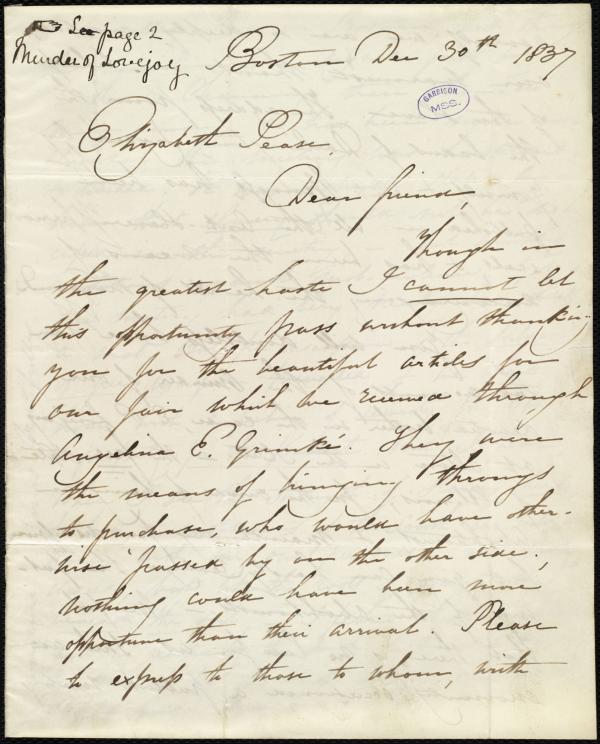 See page 2
Murder of Lovejoy
Boston Dec 30th 1837
GARRISON
MSS.
Elizabeth Pease,
Dear friend,
Though in
the greatest haste I cannot let
this opportunity pass without thanking
you for the beautiful articles for
our fair which we received through
Angelina E. Grimké. They were
the means of bringing throngs
to purchase, who would have other-
wise passed by on the other side.,
nothing could have been more
opportune than their arrival. Please
to express to those to whom, with